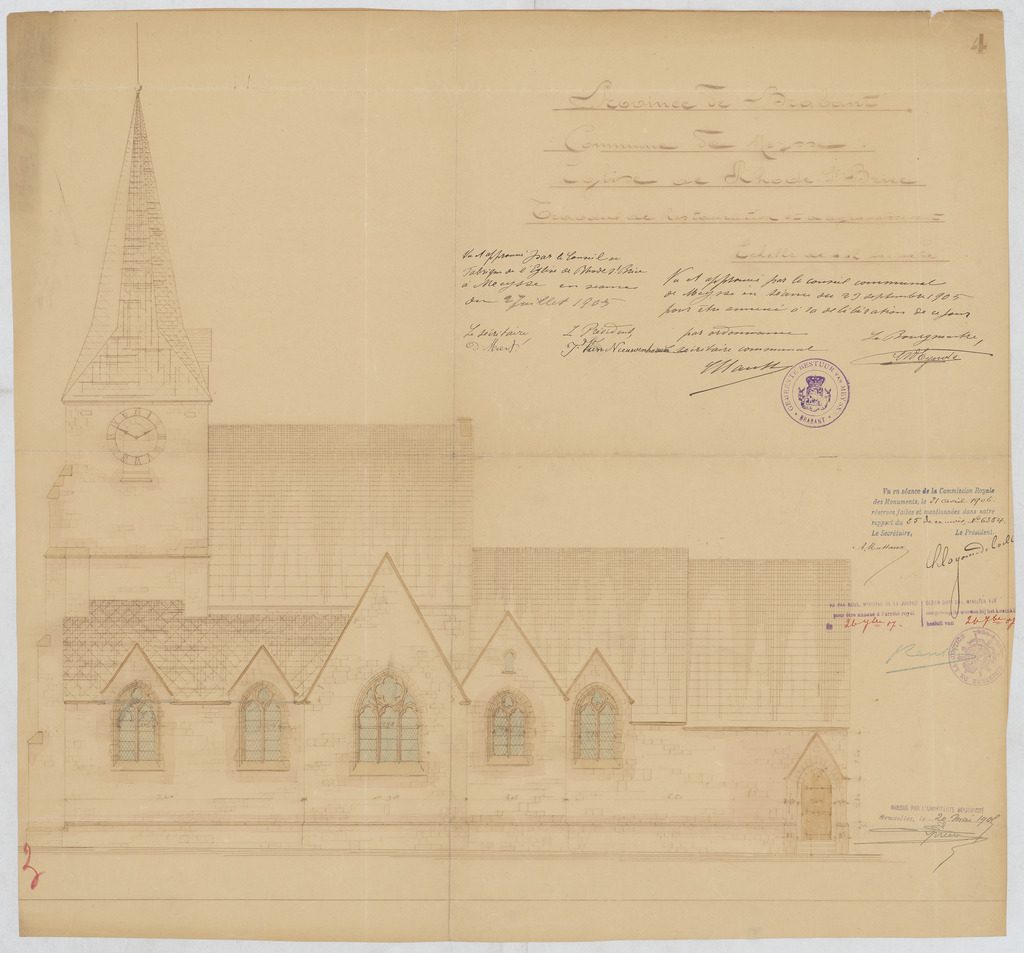 4
Province de Brabant
Commune de Meysse.
Eglise de Rhode St Brice
Travaux de restauration et d'agrandissement
Echelle de
Vu et approuvé par le Conseil de
Fabrique de l'Eglise de Rhode St Brice
à Meysse en séance
du 2 juillet 1905
Le secrétaire
Le Président,
Van Nieuwenhove
Vu et approuvé par le conseil communal
de Meysse en séance du 29 septembre 1905
pour être annexé à sa délibération de ce jour
par ordonnance
Le secrétaire communal
Le Bourgmestre,
GEMEENTE BESTUUR VAN MEYSSE
BRABANT
Vu en séance de la Commission Royale
des Monuments, le 21 avril 1906
réserves faites et mentionnées dans notre
rapport du 25 de ce mois, No 6354.
Le Secrétaire,
Le Président,
VU PAR NOUS, MINISTRE DE LA JUSTICE
pour être annexé à l'arrêté royal
du 26 7bre 07.
GEZIEN DOOR ONS, MINISTER VAN
bij het koninklijk
besluit van 26 7bre 07
DRESSÉ PAR L'ARCHITECTE SOUSSIGNÉ
Bruxelles, le 20 Mai 190
2